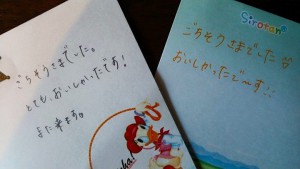 ごちそうさまでした。
とても、おいしかったです!
また来ます。
Sirotan
ごちそうさまでした
おいしかったでーす!!